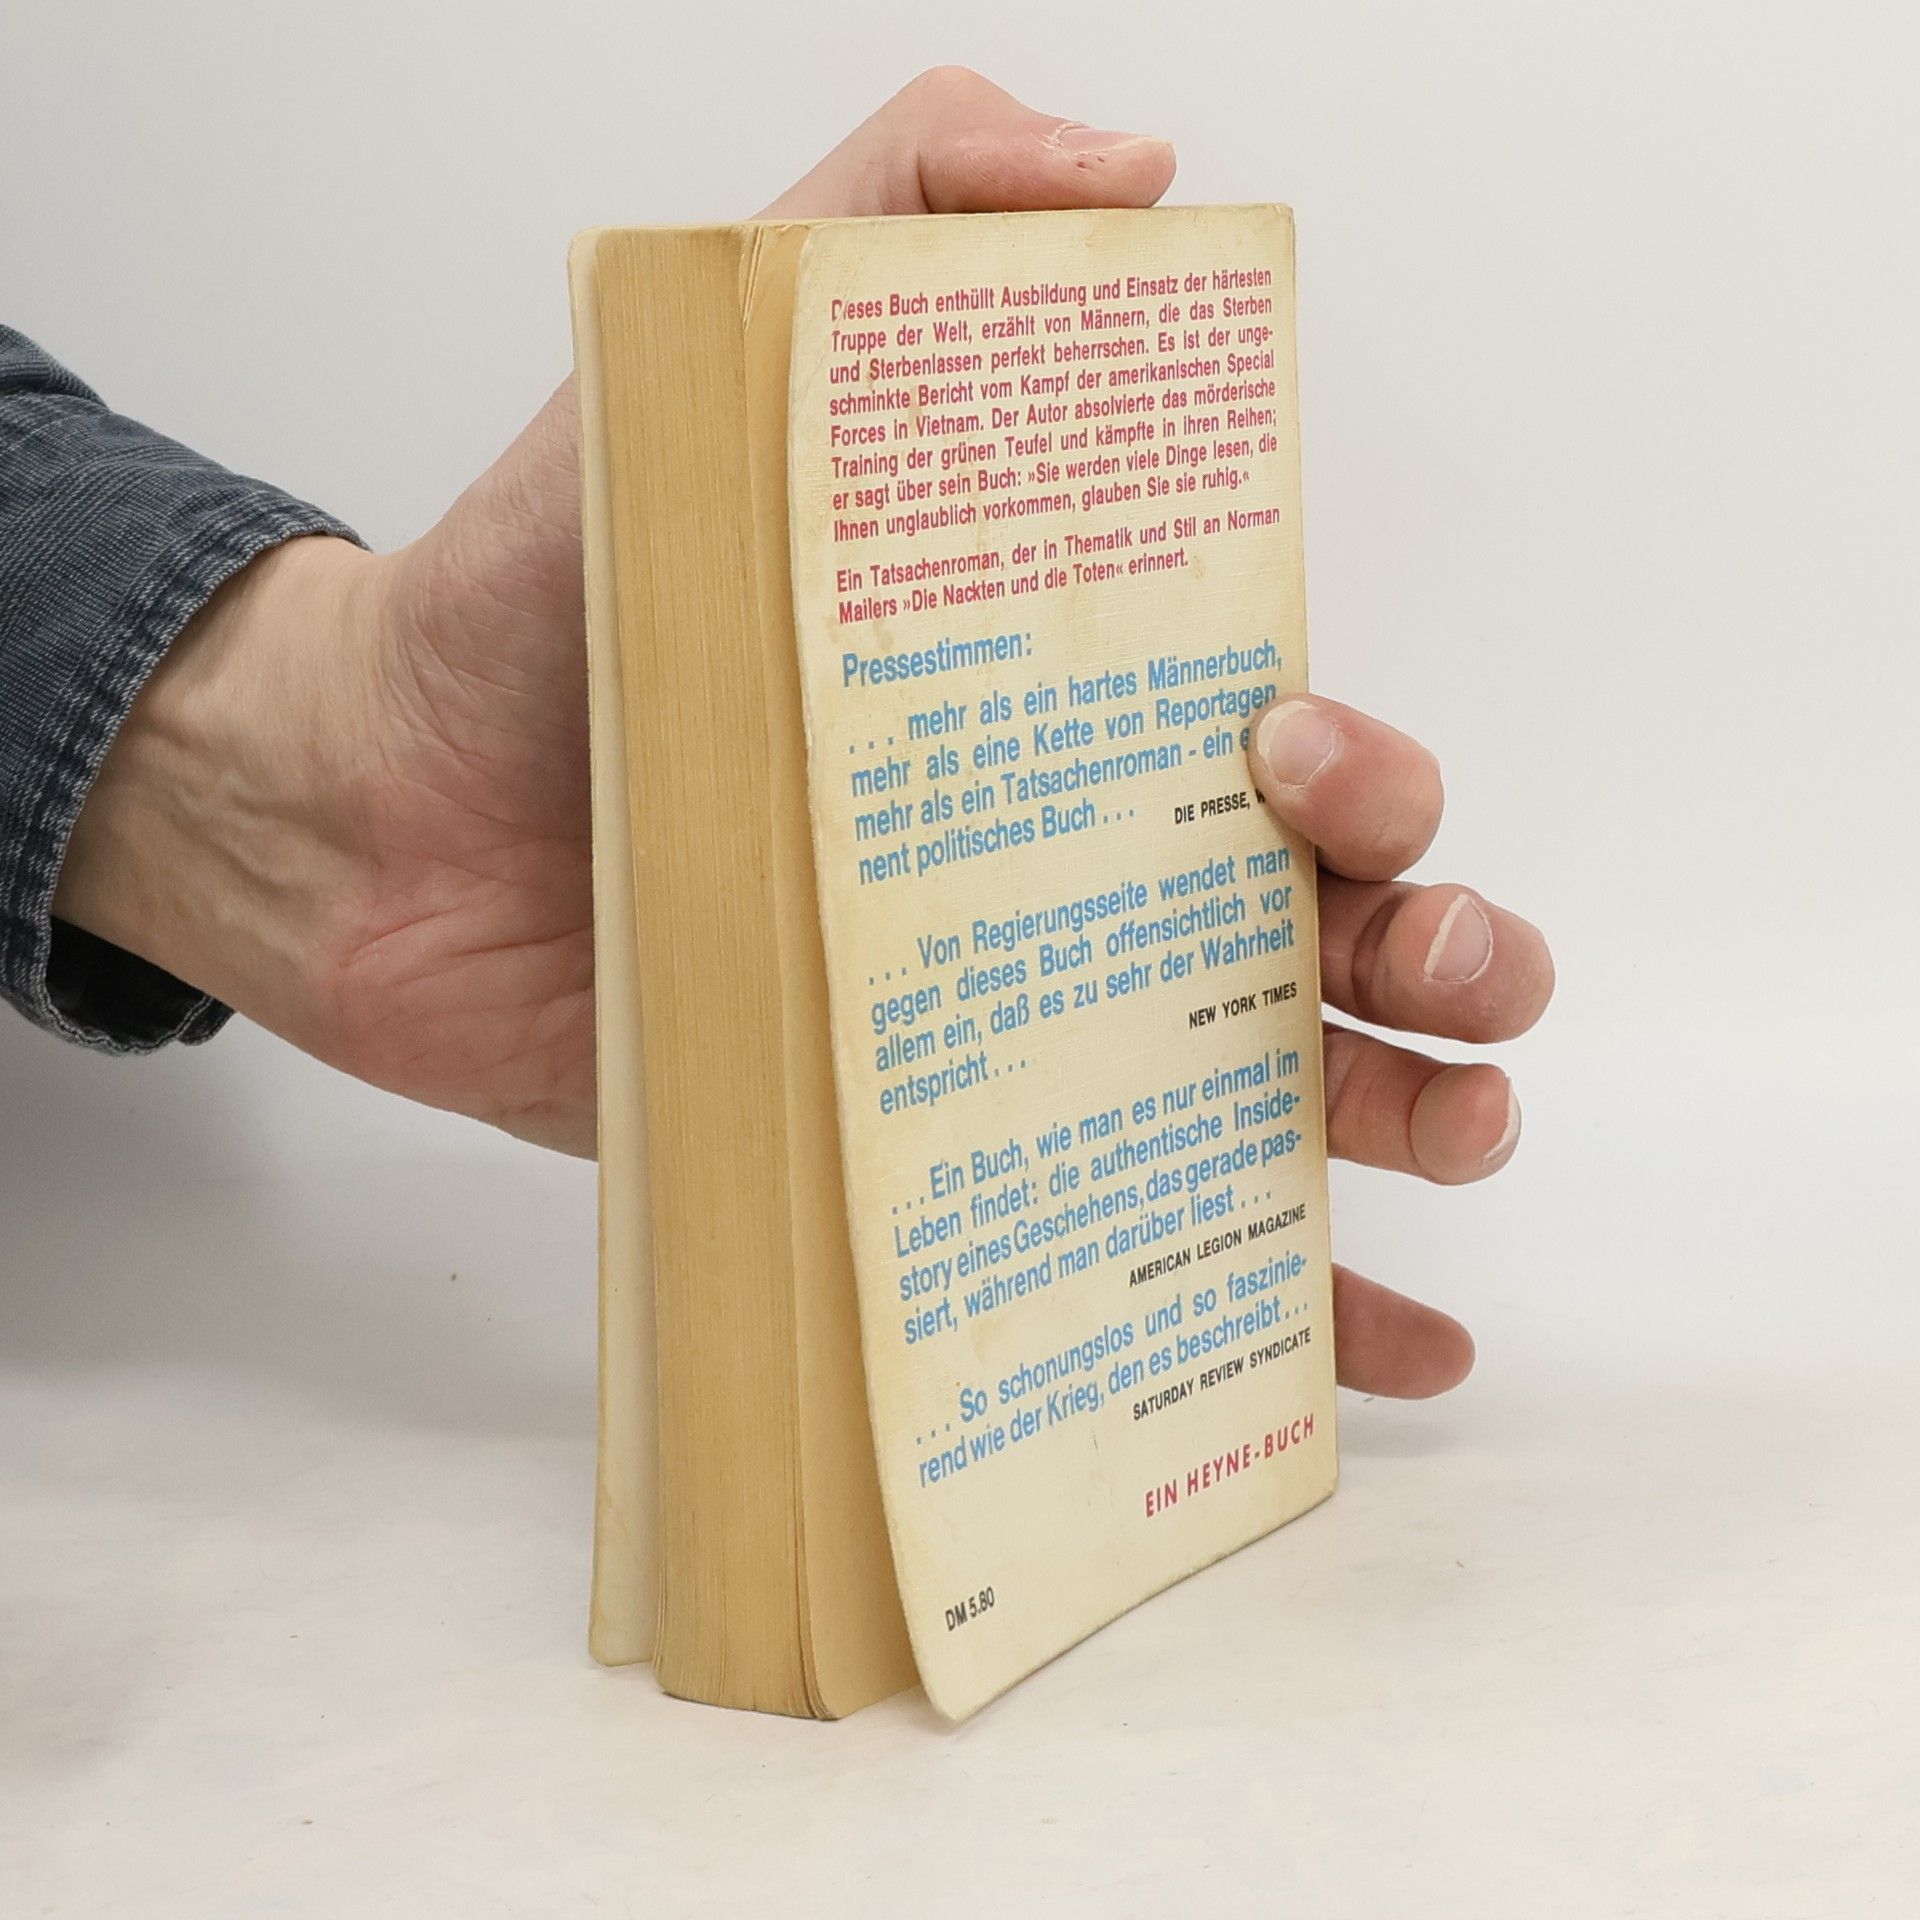 Dieses Buch enthüllt Ausbildung und Einsatz der härtesten
Truppe der Welt, erzählt von Männern, die das Sterben
und Sterbenlassen perfekt beherrschen. Es ist der unge-
schminkte Bericht vom Kampf der amerikanischen Special
Forces in Vietnam. Der Autor absolvierte das mörderische
Training der grünen Teufel und kämpfte in ihren Reihen;
er sagt über sein Buch: »Sie werden viele Dinge lesen, die
Ihnen unglaublich vorkommen, glauben Sie sie ruhig.«
Ein Tatsachenroman, der in Thematik und Stil an Norman
Mailers »Die Nackten und die Toten« erinnert.
Pressestimmen:
... mehr als ein hartes Männerbuch,
mehr als eine Kette von Reportagen
mehr als ein Tatsachenroman - ein
nent politisches Buch ...
DIE PRESSE,
... Von Regierungsseite wendet man
gegen dieses Buch offensichtlich vor
allem ein, daß es zu sehr der Wahrheit
entspricht ...
NEW YORK TIMES
... Ein Buch, wie man es nur einmal im
Leben findet: die authentische Inside-
story eines Geschehens, das gerade pas-
siert, während man darüber liest ...
AMERICAN LEGION MAGAZINE
... So schonungslos und so faszinie-
rend wie der Krieg, den es beschreibt ...
SATURDAY REVIEW SYNDICATE
EIN HEYNE-BUCH
DM 5.80